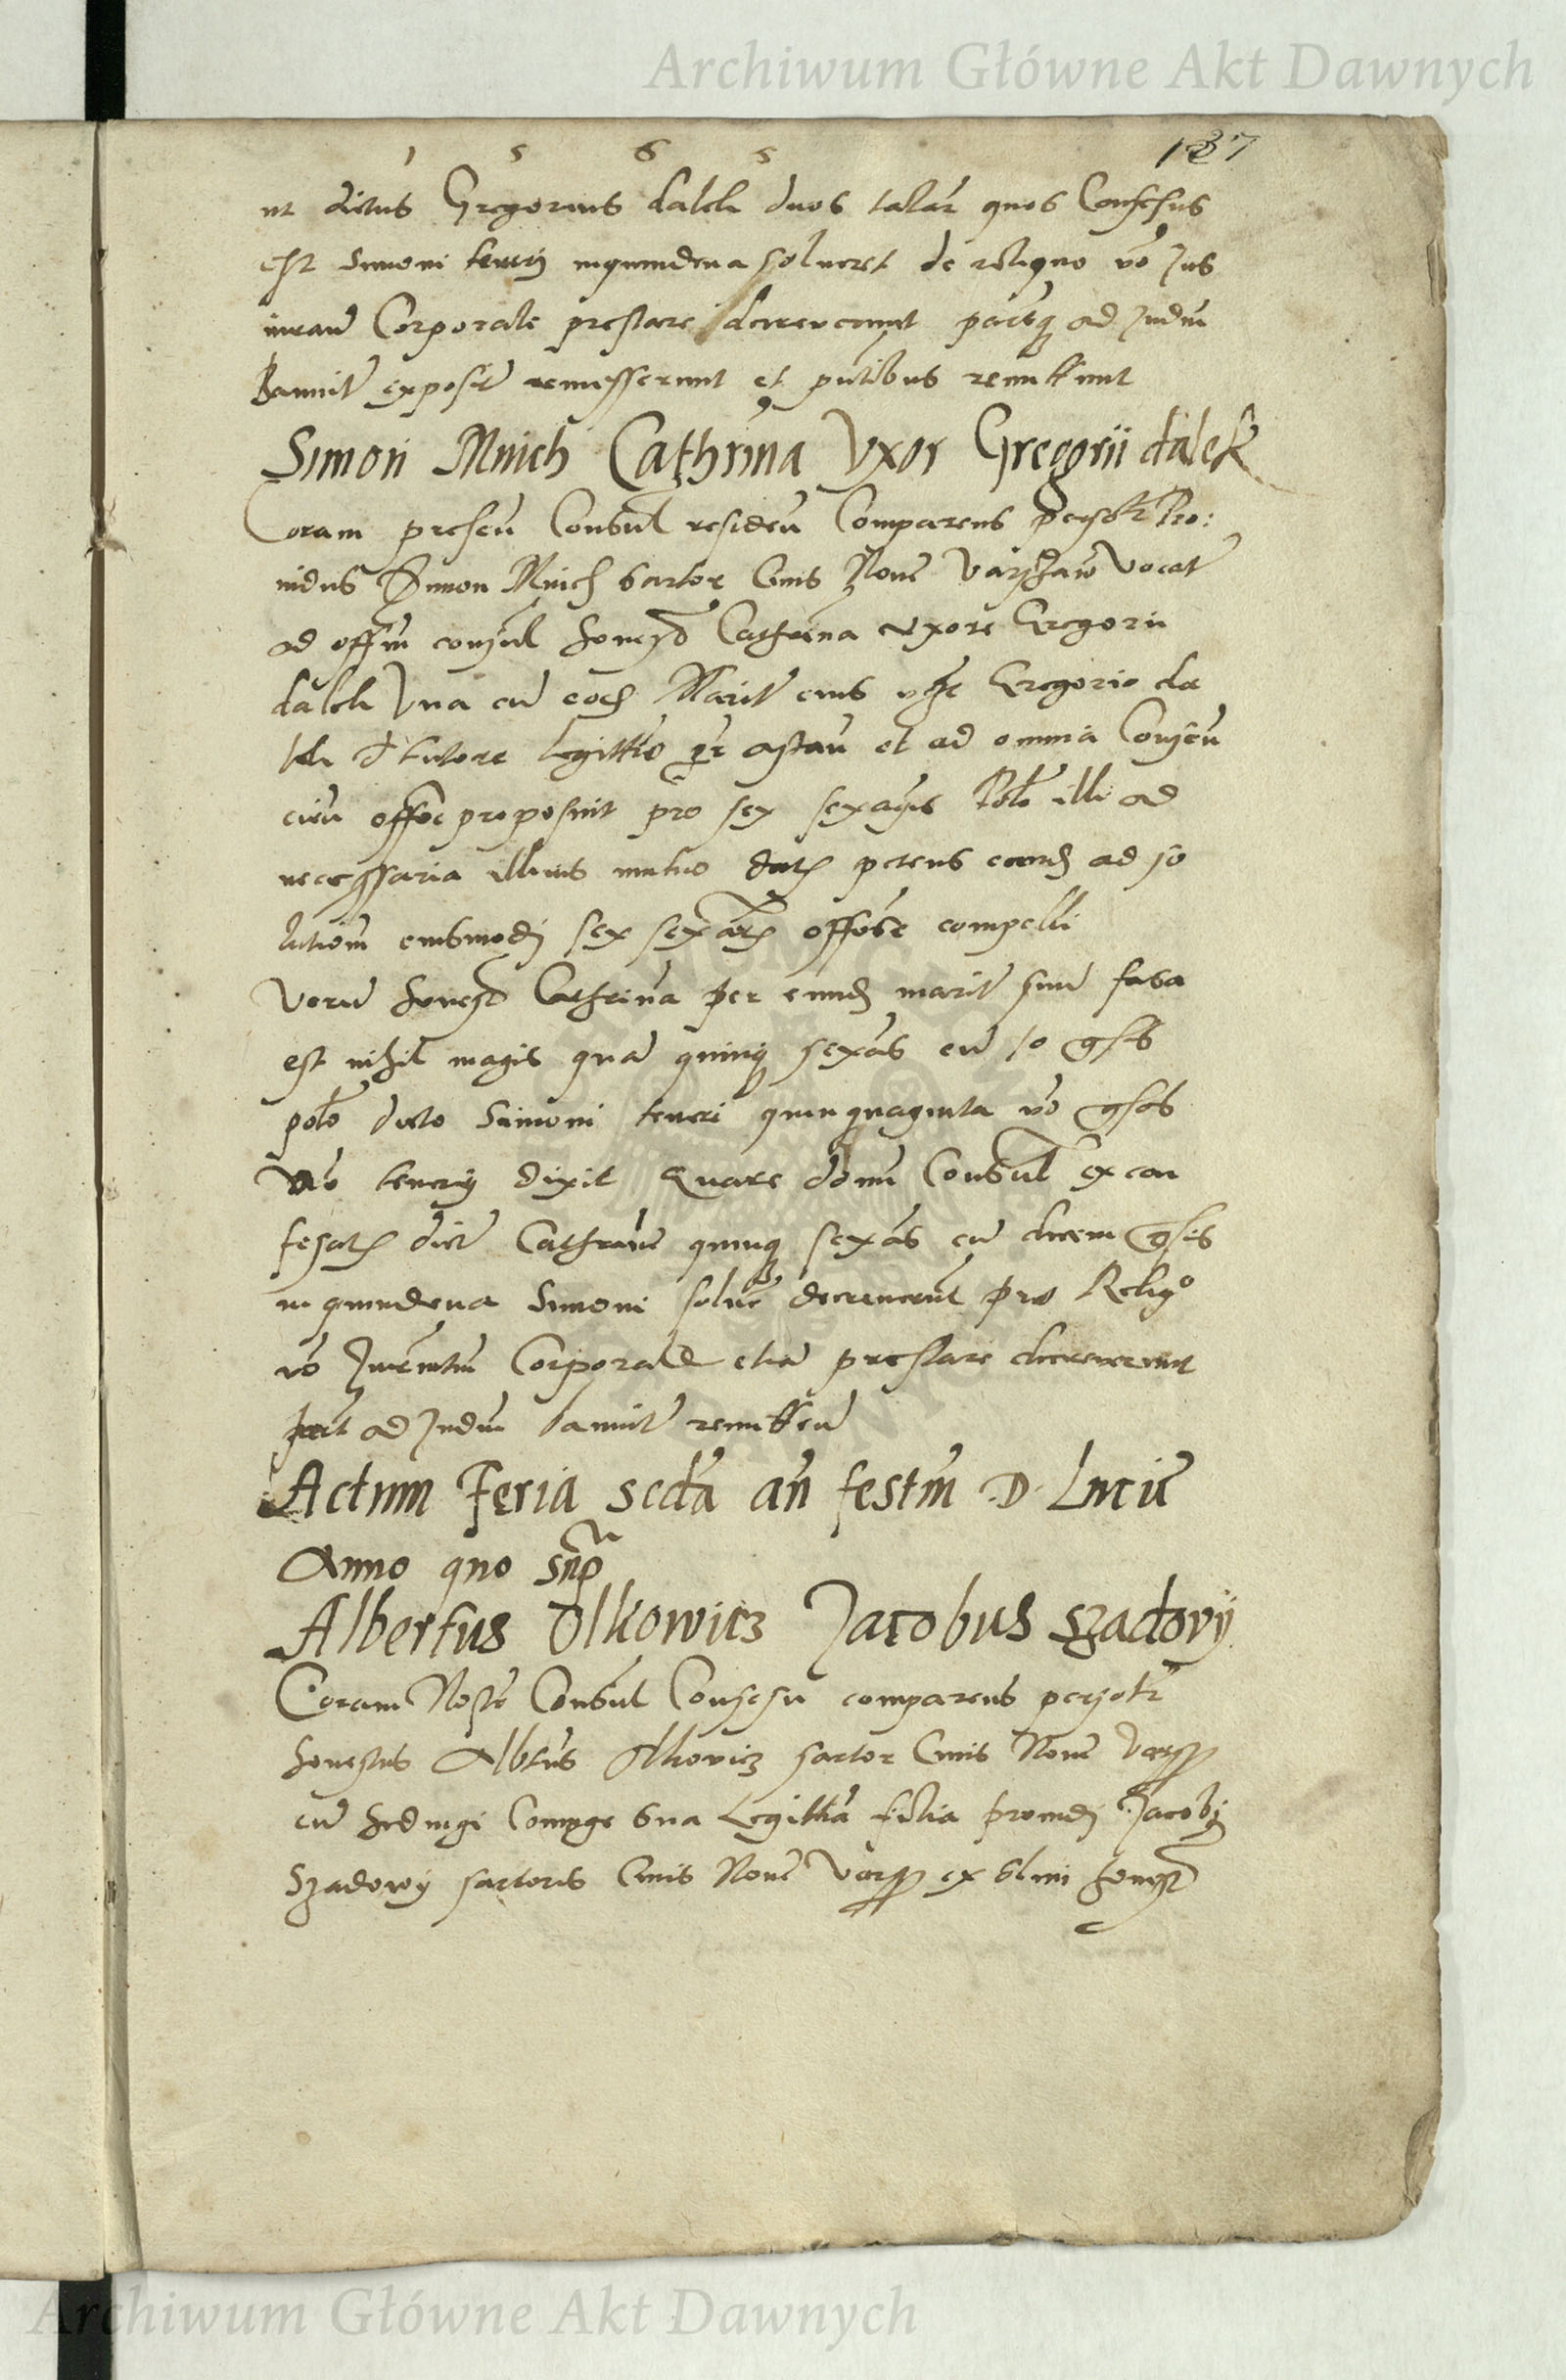 Archiwum Główne Akt Dawnych
1 5 6 5
127
ut dictus Gregorius dalek duos talar quos Confesus
est Simoni tenerj inquindena solueret de reliquo vo Jus
iurand Corporale prestare decreverunt partesq ad Judm
Bannit exposit remisserunt et pntibus remittunt
Simon Mnich Cathrina Vxor Gregorii dalek
Coram presen Consul residen Comparens personlr Pro:
uidus Simon Mnich sartor Ciuis Noue Varschaw Vocat
ad offm consul honesta Cathrina vxore Gregorii
dalek Vna cu eodem Marit eius Gregorio da
lek tutore legittio astan et ad omnia Consen
cien offose proposuit pro sex sexagis Polo illi ad
necessaria illius mutuo datis petens eandem ad so
lutiom eiusmodj sex sexarum offose compelli
Veru honesta Cathrina per eundem marit suu fassa
est nihil magis qua quinq sexas cu 10 gsis
polo dicto Simoni teneri quinquaginta vo gsos
non tenerj dixit Quare domi Consul ex con
fesatis dict Cathrine quinq sexas cu decem gsis
in quindena Simoni soluere decreuerunt pro Reliqo
vo Jurentum Corporale etia prestare decreuerunt
ad Judm bannit remitten
Actum Feria scda an festm D. Lucie
Anno quo sup
Albertus Olkowicz Jacobus szadovy
Coram Nostro Consul Consesu comparens personlr
honestus Albtus Olkovicz sartor Ciuis Noue Varss
cu hedvigi Coniuge sua Legittia filia prouidj Jacobj
Szadowy sartoris Ciuis Noue Varss ex olim honesta
Archiwum Główne Akt Dawnych